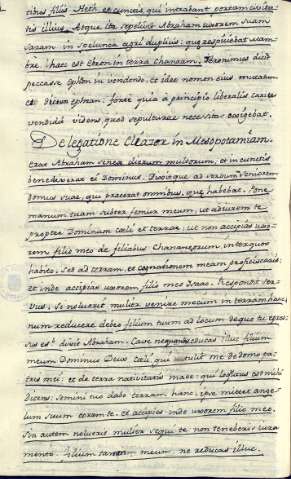 cibus filius Heth et cunctis qui intrabant portam civita-
tis illius. Atque ita sepelivit Abraham uxorem suam
Saram in spelunca agri duplici: que respiciebat Mam-
bre: haec est Ebron in terra Chanaam. Jeronimus dicit
peccasse Ephron in vendendo, et ideo nomen eius mutatum
et dictum ephran. forte quia à principio liberalis cartus
vendidit videns, quod sepulturae necessitas cogebat.
De legatione Eleazar in Mesopotamiam.
Erat Abraham senex dierum multorum, et in cunctis
benedixerat ei Dominus. Dixitque ad servum seniorem
domus suae, qui praeerat omnibus, quae habebat. Pone
manum tuam subter femur meum, ut adiurem te
propter Dominum caeli et terrae: ut non accipias uxo-
rem filio meo de filiabus Chananeorum, inter quos
habito. Sed ad terram, et cognationem meam proficiscaris:
et inde accipias uxorem filio meo Isaac. Respondit ser-
vus. Si noluerit mulier venire mecum in terram hanc,
num reducere debeo filium tuum ad locum de quo tu egres-
sus es? dixit Abraham. Cave nequando reducas illuc filium
meum Dominus Deus caeli qui tulit me de domo pa-
tris mei: et de terra nativitatis meae: qui loqutus est mihi
dicens: semini tuo dabo terram hanc: ipse mittet ange-
lum suum coram te: et accipies inde uxorem filio meo.
Sin autem noluerit mulier sequi te non teneberis iura-
mento. filium tantum meum ne reducas illuc.